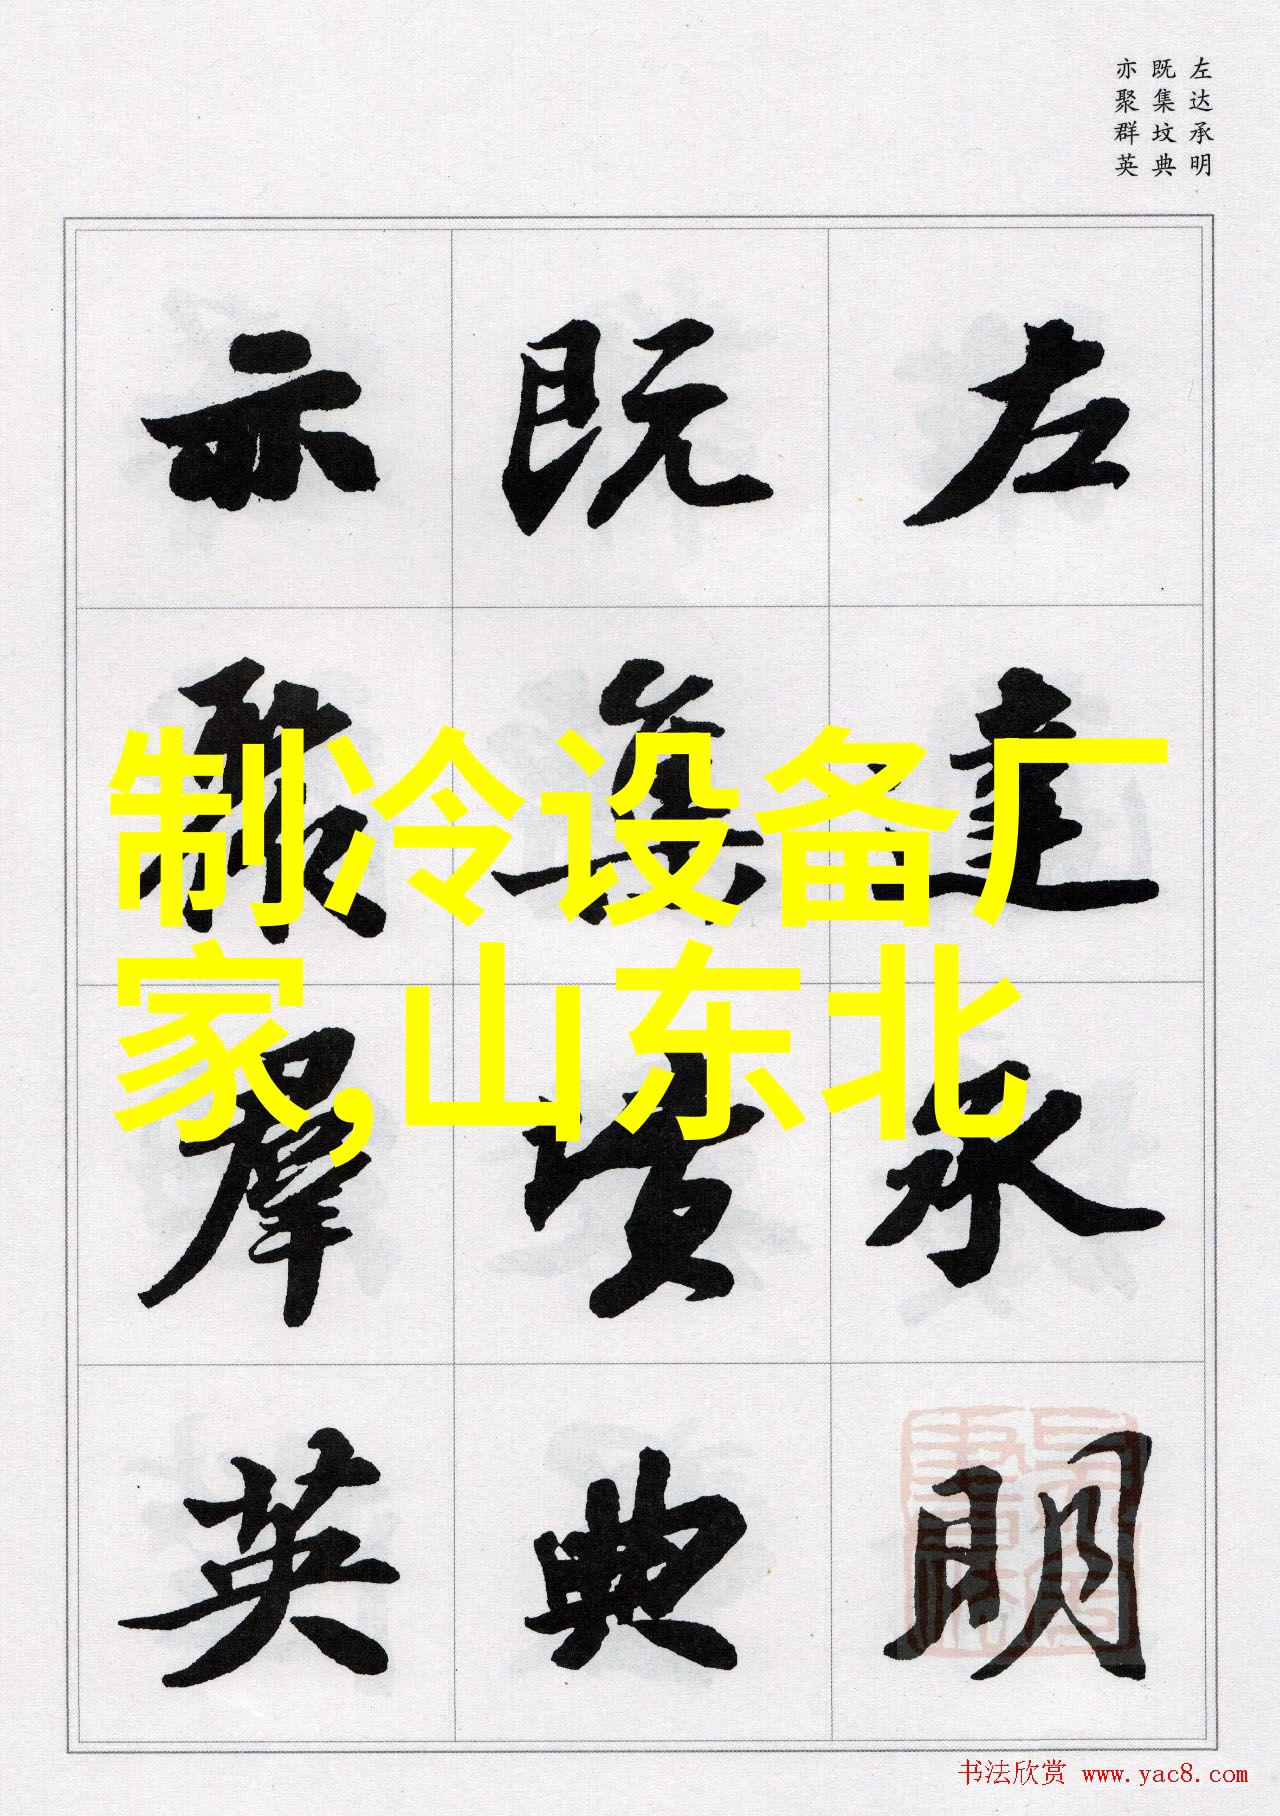 左达承明
既集坟典
亦聚群英
左達承明
既集墳典
亦聚羣英
制冷设备厂
家,山东北
书法欣赏 www.yac8.com